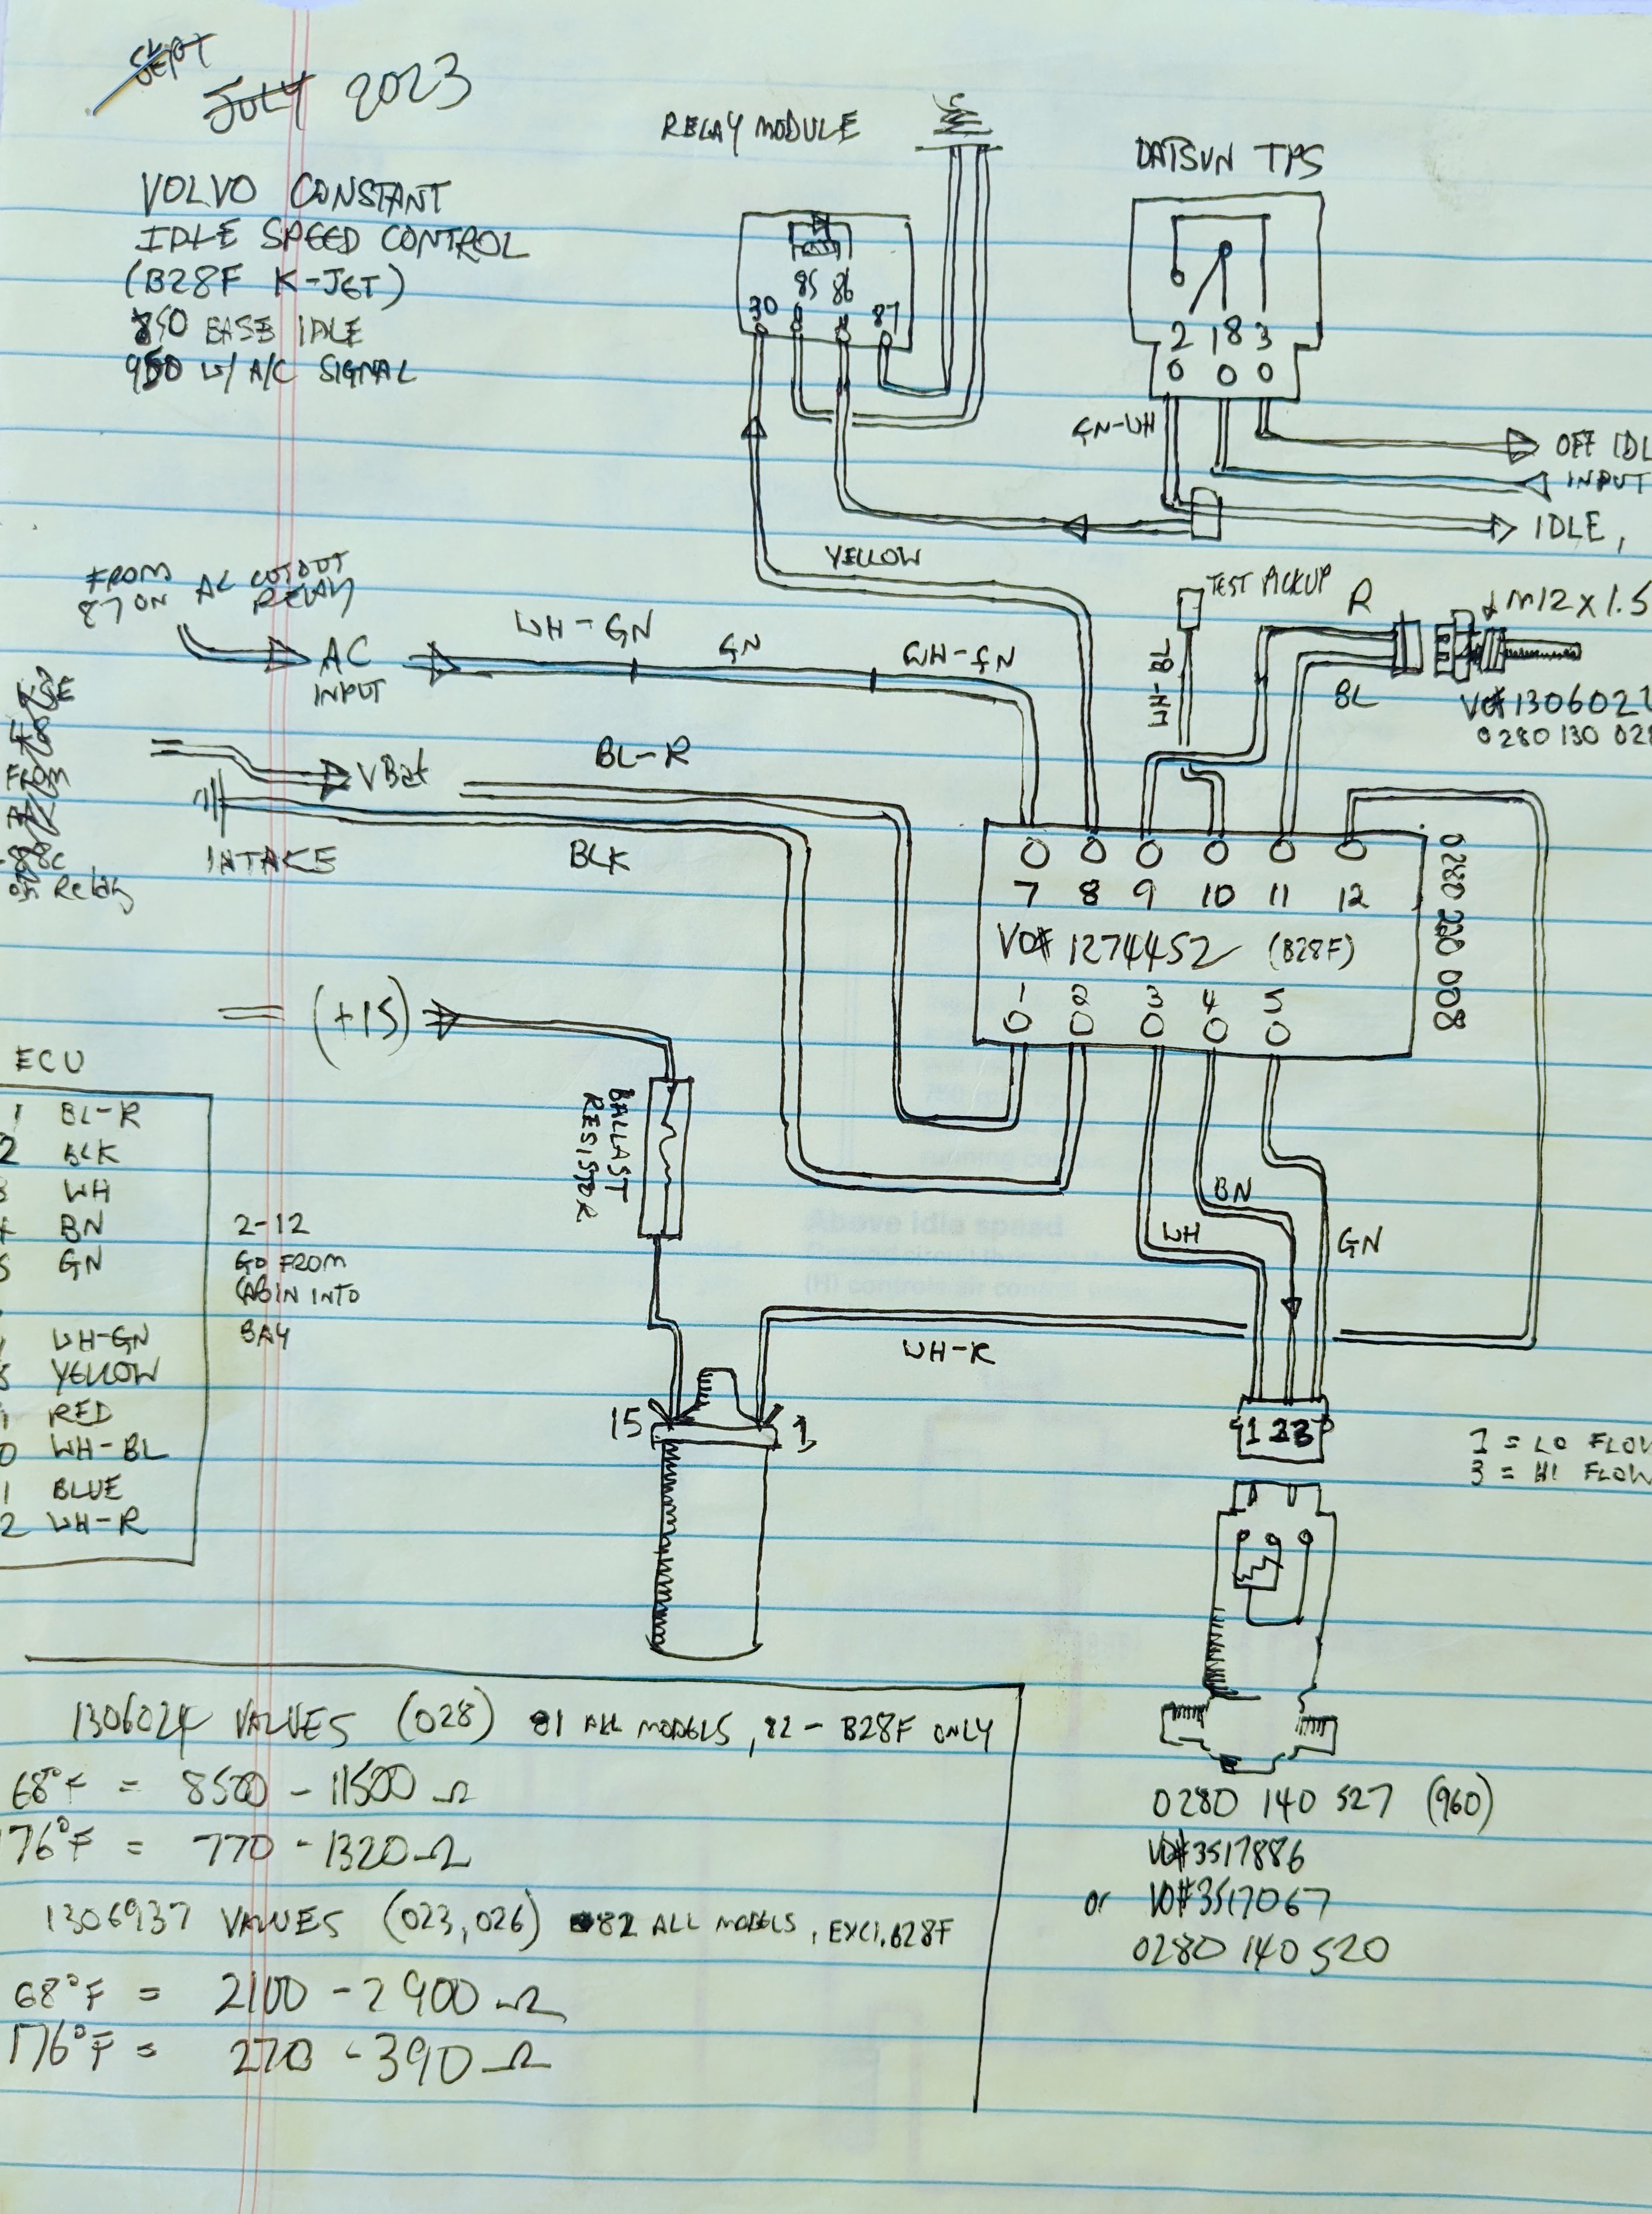 SEPT
JULY 2023
VOLVO CONSTANT
IDLE SPEED CONTROL
(B28F K-JET)
850 BASE IDLE
950 W/ A/C SIGNAL
RELAY MODULE
85 86
30 87
DATSUN TPS
2 18 3
GN-WH
OFF IDL
INPUT
IDLE,
YELLOW
FROM
87 ON AC CUTOUT
RELAY
AC
INPUT
WH-GN
GN
WH-GN
TEST PICKUP
WH-BL
R
BL
M12 X 1.5
VO# 1306024
0280 130 028
VBat
BL-R
INTAKE
BLK
FROM
Relay
7 8 9 10 11 12
VO# 1274452 (B28F)
1 2 3 4 5
0280 220 008
(+15)
BALLAST
RESISTOR
BN
WH
GN
WH-R
15 1
1 2 3
1 = LO FLOW
3 = HI FLOW
ECU
1 BL-R
2 BLK
3 WH
4 BN
5 GN
WH-GN
8 YELLOW
RED
0 WH-BL
1 BLUE
2 WH-R
2-12
GO FROM
CABIN INTO
BAY
1306024 VALVES (028) 81 ALL MODELS, 82 - B28F ONLY
68°F = 8500 - 11500 Ω
176°F = 770 - 1320 Ω
1306937 VALUES (023,026) 82 ALL MODELS, EXCL. B28F
68°F = 2100 - 2900 Ω
176°F = 270 - 390 Ω
0280 140 527 (960)
VO# 3517886
or VO# 3517067
0280 140 520
Above idle speed